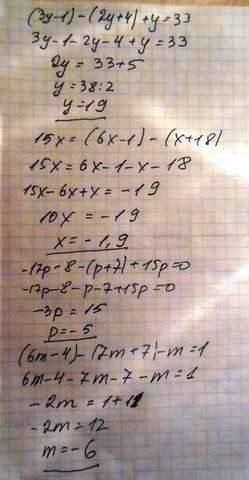 (3y-1)-(2y+4)+y=33
3y-1-2y-4+y=33
2y=33+5
y=38:2
y=19
15x=(6x-1)-(x+18)
15x=6x-1-x-18
15x-6x+x=-19
10x=-19
x=-1,9
-17p-8-(p+7)+15p=0
-17p-8-p-7+15p=0
-3p=15
p=-5
(6m-4)-(7m+7)-m=1
6m-4-7m-7-m=1
-2m=1+11
-2m=12
m=-6